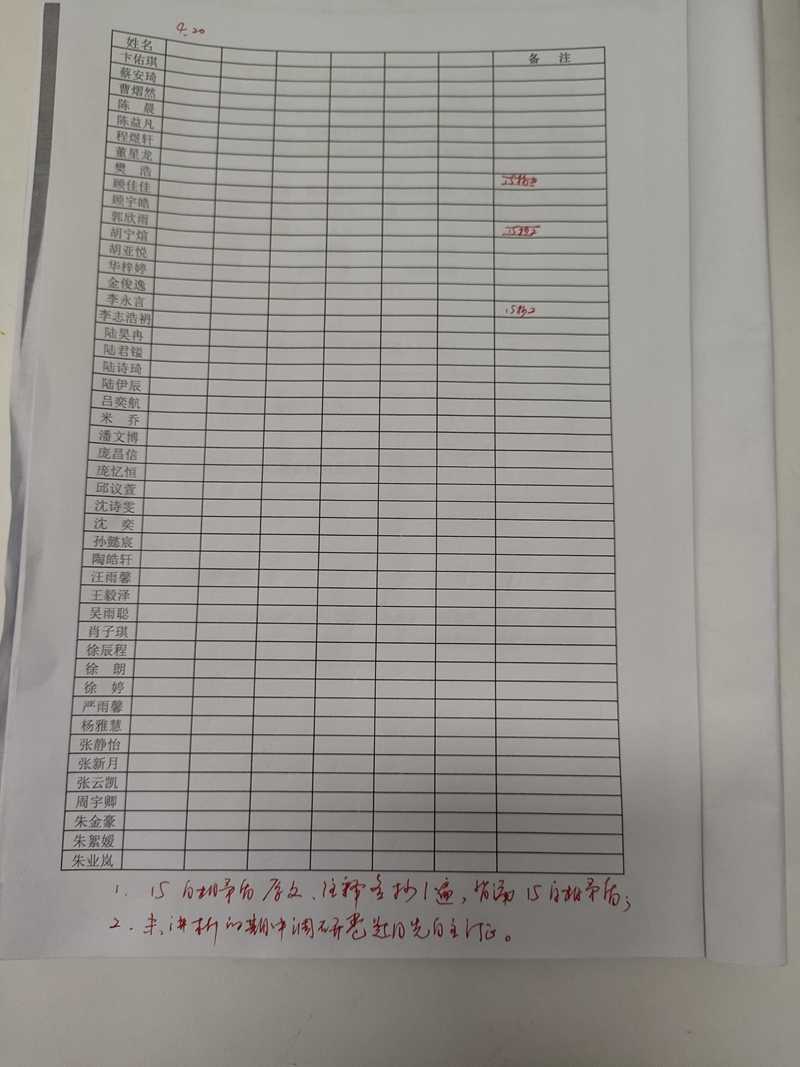 4.20
姓名 备 注
卞佑琪
蔡安琦
曹熠然
陈 晨
陈益凡
程煜轩
董星龙
樊 浩
顾佳佳
顾宇皓
郭欣雨
胡宁煊
胡亚悦
华梓婷
金俊逸
李永言
李志浩祤
陆昊冉
陆君镒
陆诗琦
陆伊辰
吕奕航
米 乔
潘文博
庞昌信
庞忆恒
邱议萱
沈诗雯
沈 奕
孙懿宸
陶皓轩
汪雨馨
王毅泽
吴雨聪
肖子琪
徐辰程
徐 朗
徐 婷
严雨馨
杨雅慧
张静怡
张新月
张云凯
周宇卿
朱金豪
朱絮媛
朱业岚
1. 15 自相矛盾 原文、注释各抄1遍，背诵 15 自相矛盾；
2. 未讲析的期中调研卷题目先自主订正。